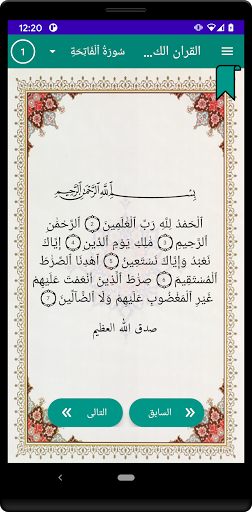 12:20
القران الك...
سُورَةُ ٱلْفَاتِحَةِ
1
بِسْمِ ٱللَّهِ ٱلرَّحْمَٰنِ ٱلرَّحِيمِ
ٱلْحَمْدُ لِلَّهِ رَبِّ ٱلْعَٰلَمِينَ ۝2 ٱلرَّحْمَٰنِ
ٱلرَّحِيمِ ۝3 مَٰلِكِ يَوْمِ ٱلدِّينِ ۝4 إِيَّاكَ
نَعْبُدُ وَإِيَّاكَ نَسْتَعِينُ ۝5 ٱهْدِنَا ٱلصِّرَٰطَ
ٱلْمُسْتَقِيمَ ۝6 صِرَٰطَ ٱلَّذِينَ أَنْعَمْتَ عَلَيْهِمْ
غَيْرِ ٱلْمَغْضُوبِ عَلَيْهِمْ وَلَا ٱلضَّآلِّينَ ۝7
صدق الله العظيم
السابق
التالى